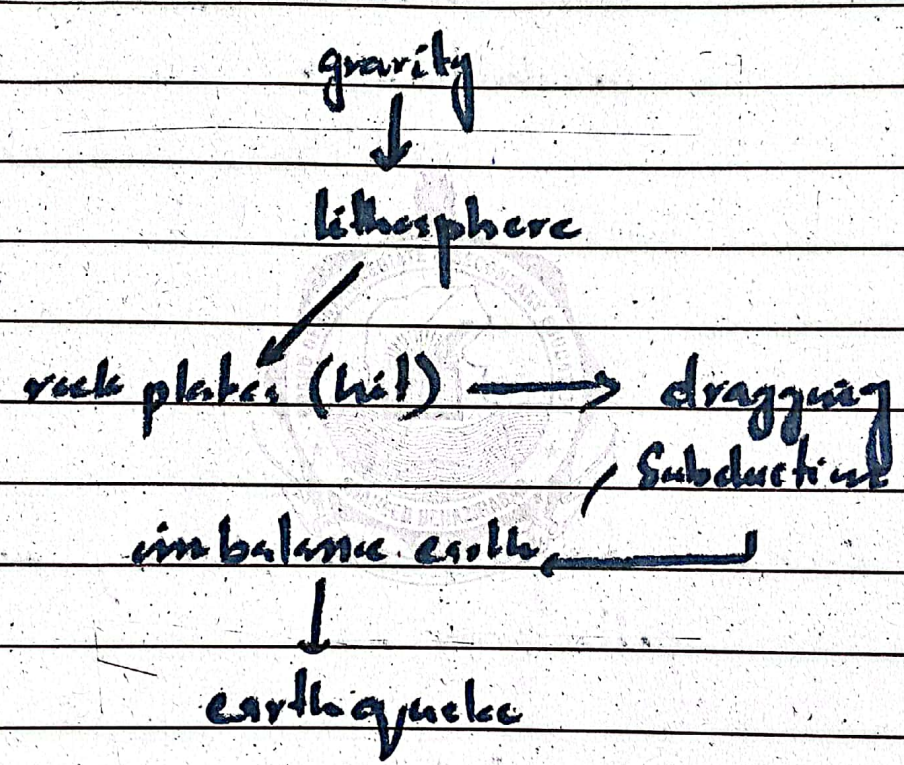 gravity
lithosphere
rock plates (hit) dragging
/ Subduction
imbalance earth
earthquake